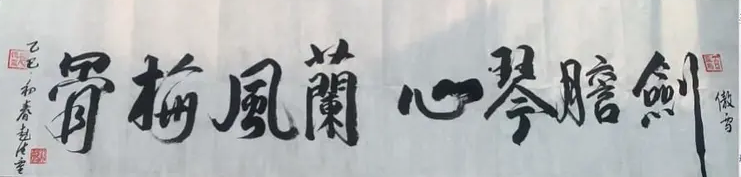 傲雪
劍膽琴心 蘭風梅骨
乙巳初春